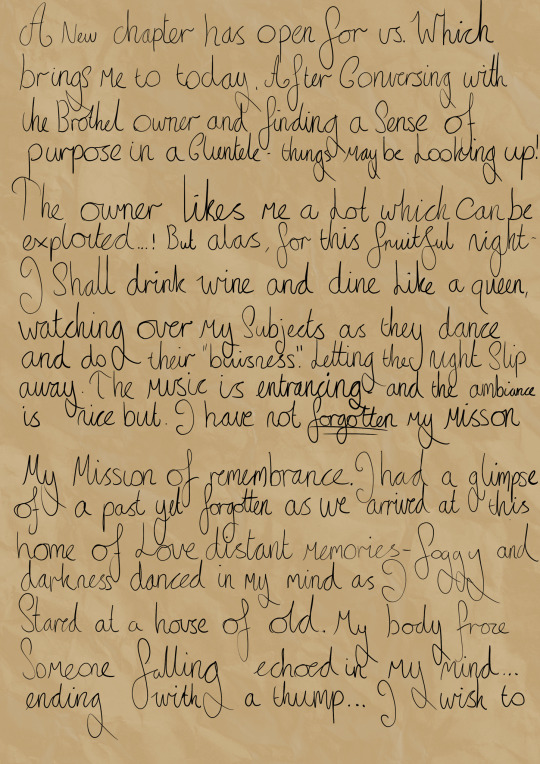 A New chapter has open for us. Which
brings me to today. After Conversing with
the Brothel owner and finding a Sense of
purpose in a Clientele - things may be Looking up!
The owner likes me a Lot which Can be
exploited...! But alas, for this fruitful night-
I Shall drink wine and dine Like a queen,
watching over my Subjects as they dance
and do their "buisness". Letting the night Slip
away. The Music is entrancing and the ambiance
is nice but. I have not forgotten my Misson
My Mission of remembrance. I had a glimpse
of a past yet forgotten as we arrived at this
home of Love distant memories- foggy and
darkness danced in my mind as I
Stared at a house of old. My body froze
Someone falling echoed in my mind...
ending with a thump... I wish to